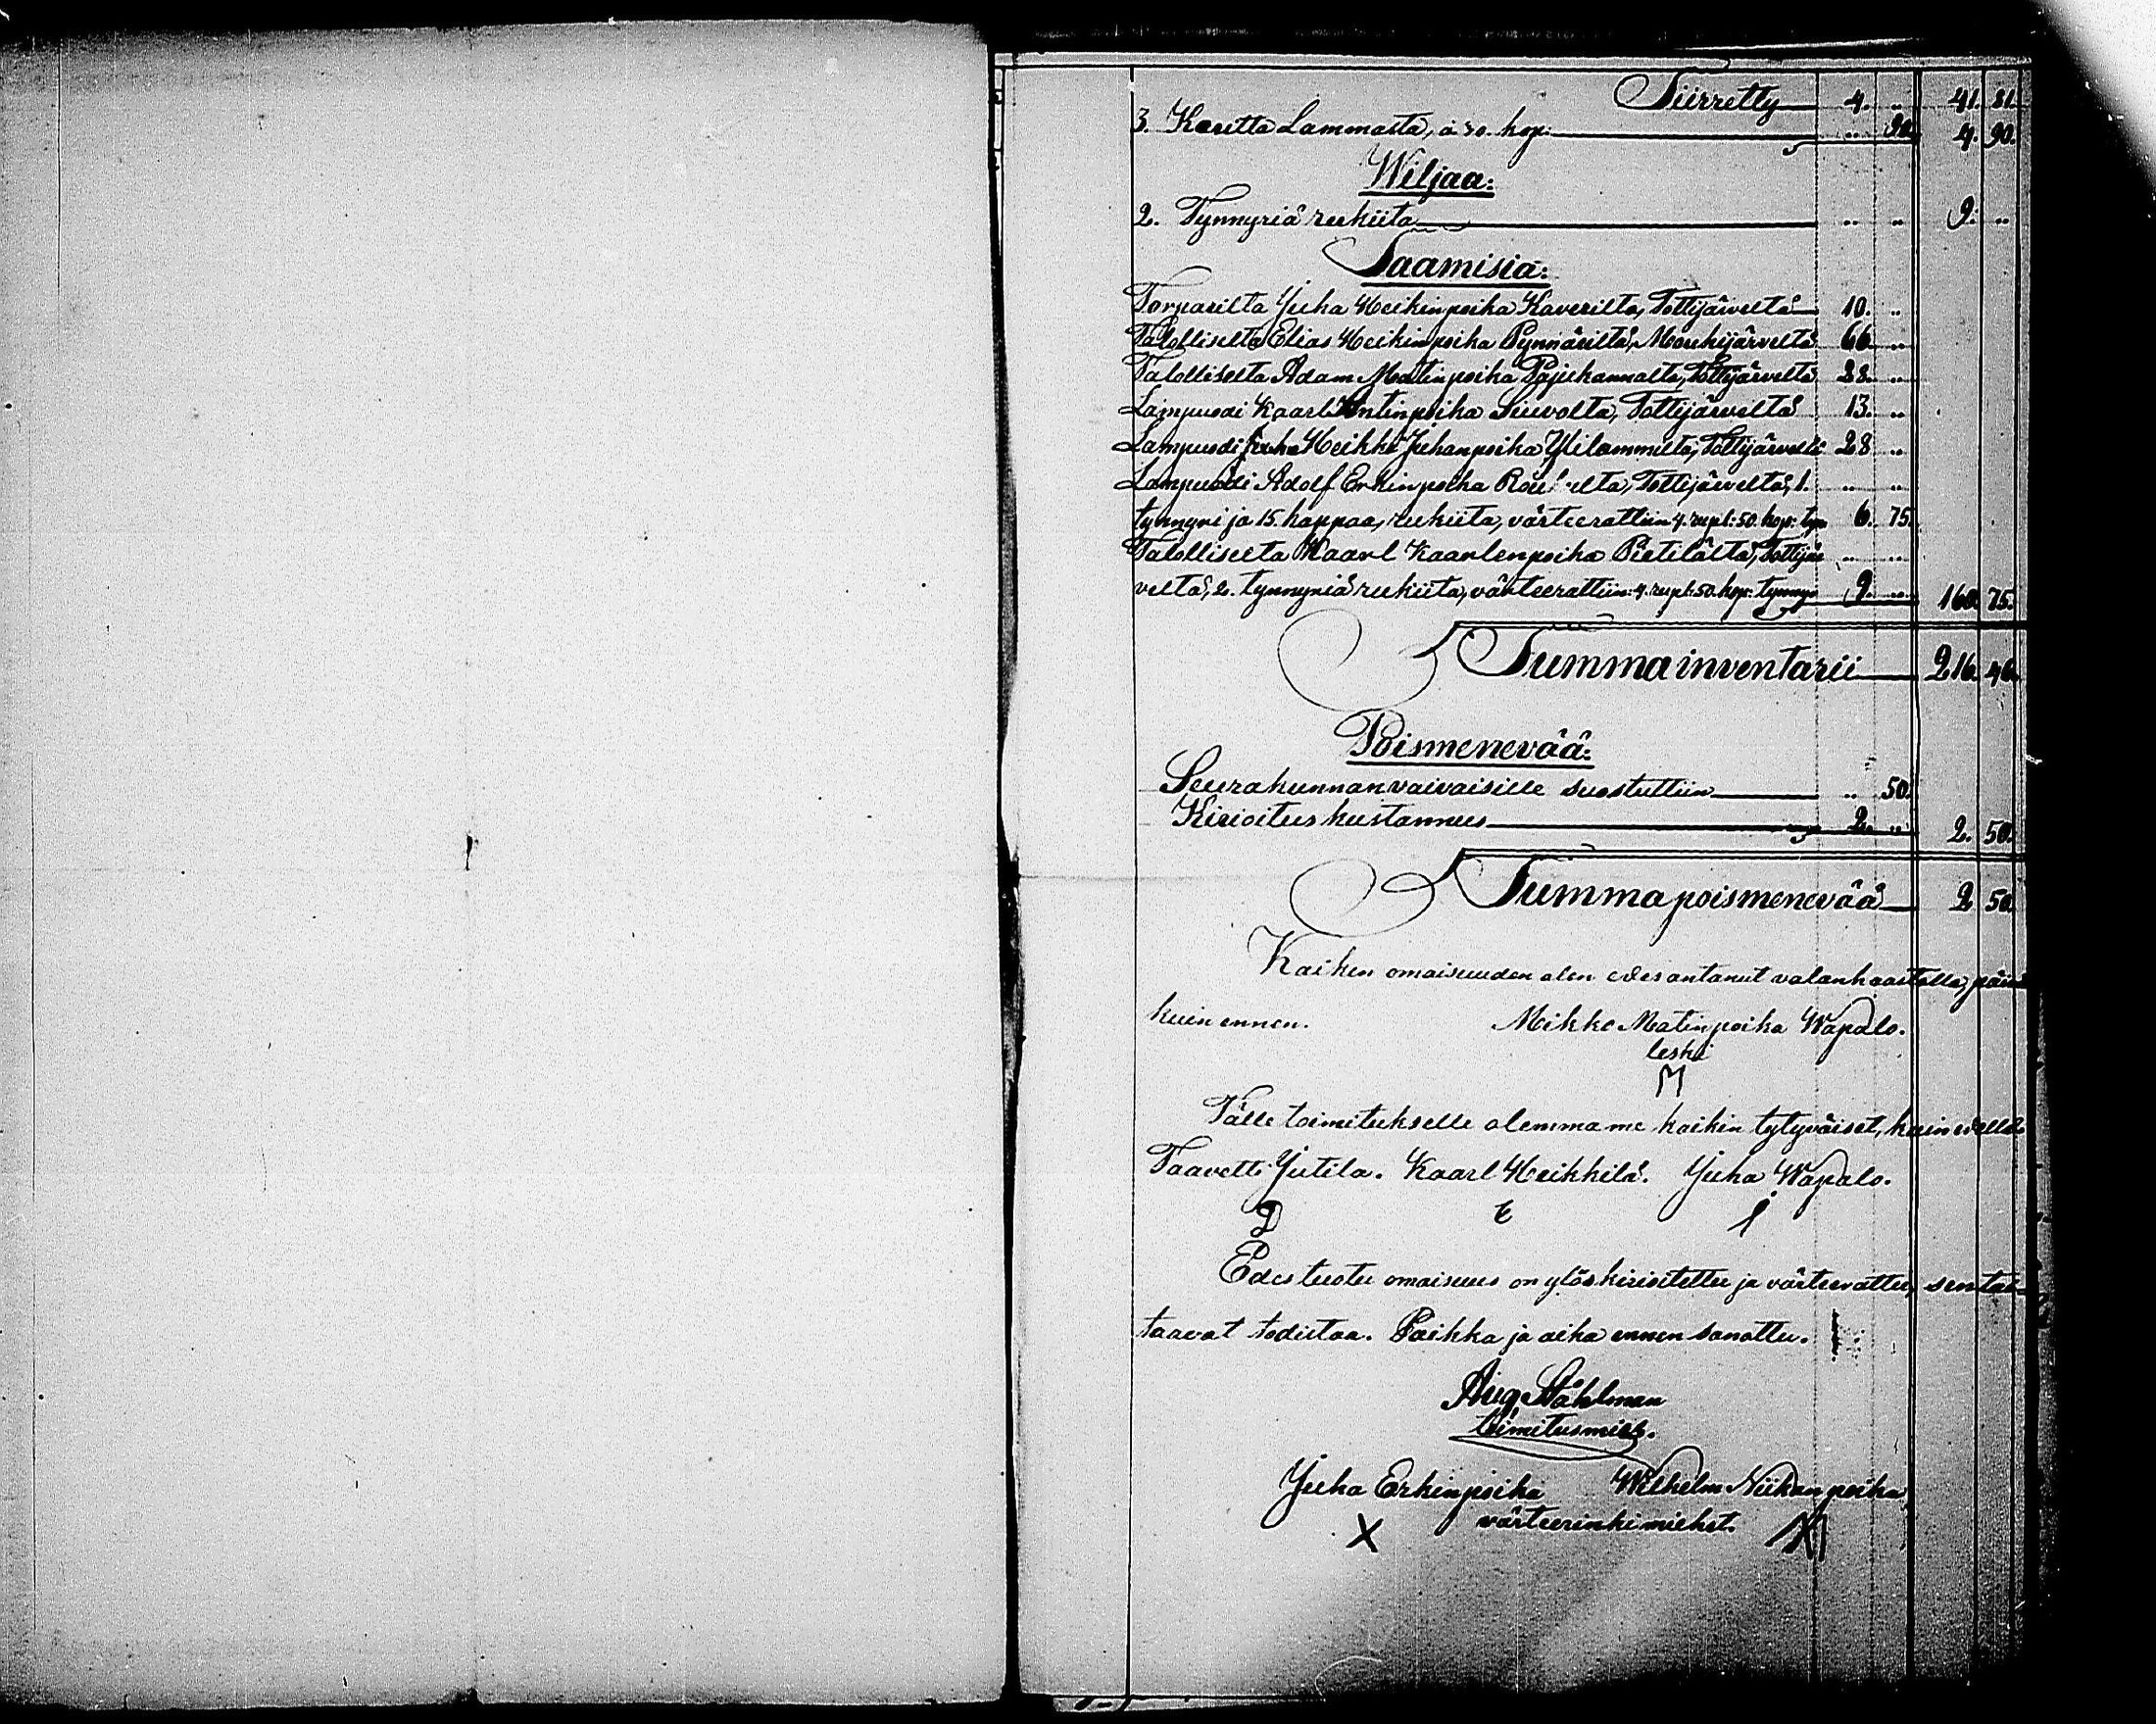 Siirretty 4. „ 41. 81.
3. Keritta Lammasta, á 30. kop: „ 90. 4. 90.
Wiljaa:
2. Tynnyriä rukiita „ „ 9. „
Saamisia:
Torparilta Juha Heikinpoika Kaverilta, Tottijärveltä 10. „
Talolliselta Elias Heikinpoika Pynnäriltä, Mouhijärveltä 66. „
Talolliselta Adam Matinpoika Pajukannalta, Tottijärveltä 28. „
Lampuodi Kaarl Antinpoika Siuvolta, Tottijärveltä 13. „
Lampuodi Heikki Juhanpoika Ylilammilta, Tottijärveltä 28 „
Lampuodi Adolf Erkinpoika Tottijärveltä, 1. „ „
tynnyri ja 15. kappaa, rukiita, värteerattiin 4. rupl: 50. kop: tyn 6. 75.
Talolliselta Kaarl Kaarlenpoika Pietilältä, Tottijär „ „
veltä, 2. tynnyriä rukiita, värteerattiin: 4. rupl: 50. kop: tynnyr 9. „ 160. 75.
Summa inventarii 216. 46.
Poismenevää:
Seurakunnan vaivaisille suostuttiin „ 50.
Kirioitus kustannus 2. „ 2. 50.
Summa poismenevää 2 50.
Kaiken omaisuuden olen edes antanut valanhaastolla, päin
kuin ennen. Mikko Matinpoika Wapalo.
leski
M
Tälle toimitukselle olemma me kaikin tytyväiset, kuin
Taavetti Jutila. Kaarl Heikkilä. Juha Wapalo.
D K J
Edestuotu omaisuus on ylöskirioitettu ja värteerattu, sen tai
taavat todistaa. Paikka ja aika ennen sanottu.
Aug Ståhlman
toimitusmies.
Juha Erkinpoika Wilhelm Niikanpoika
X värteerinki miehet.